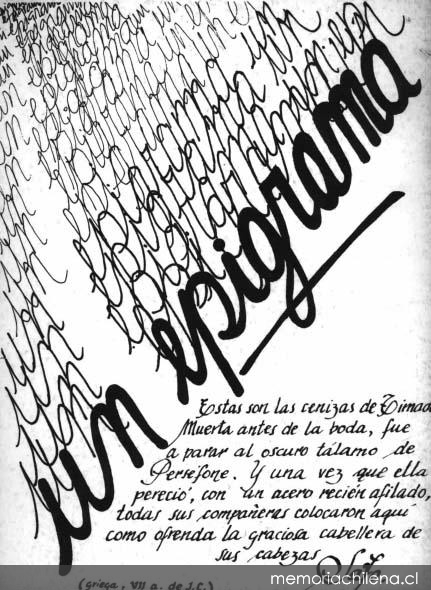 un epigrama
Estas son las cenizas de Timad
Muerta antes de la boda, fue
a parar al oscuro tálamo de
Persefone. Y una vez que ella
pereció, con un acero recién afilado,
todas sus compañeras colocaron aquí
como ofrenda la graciosa cabellera de
sus cabezas
Safo
(griega, VII a. de J.C.)
memoriachilena.cl